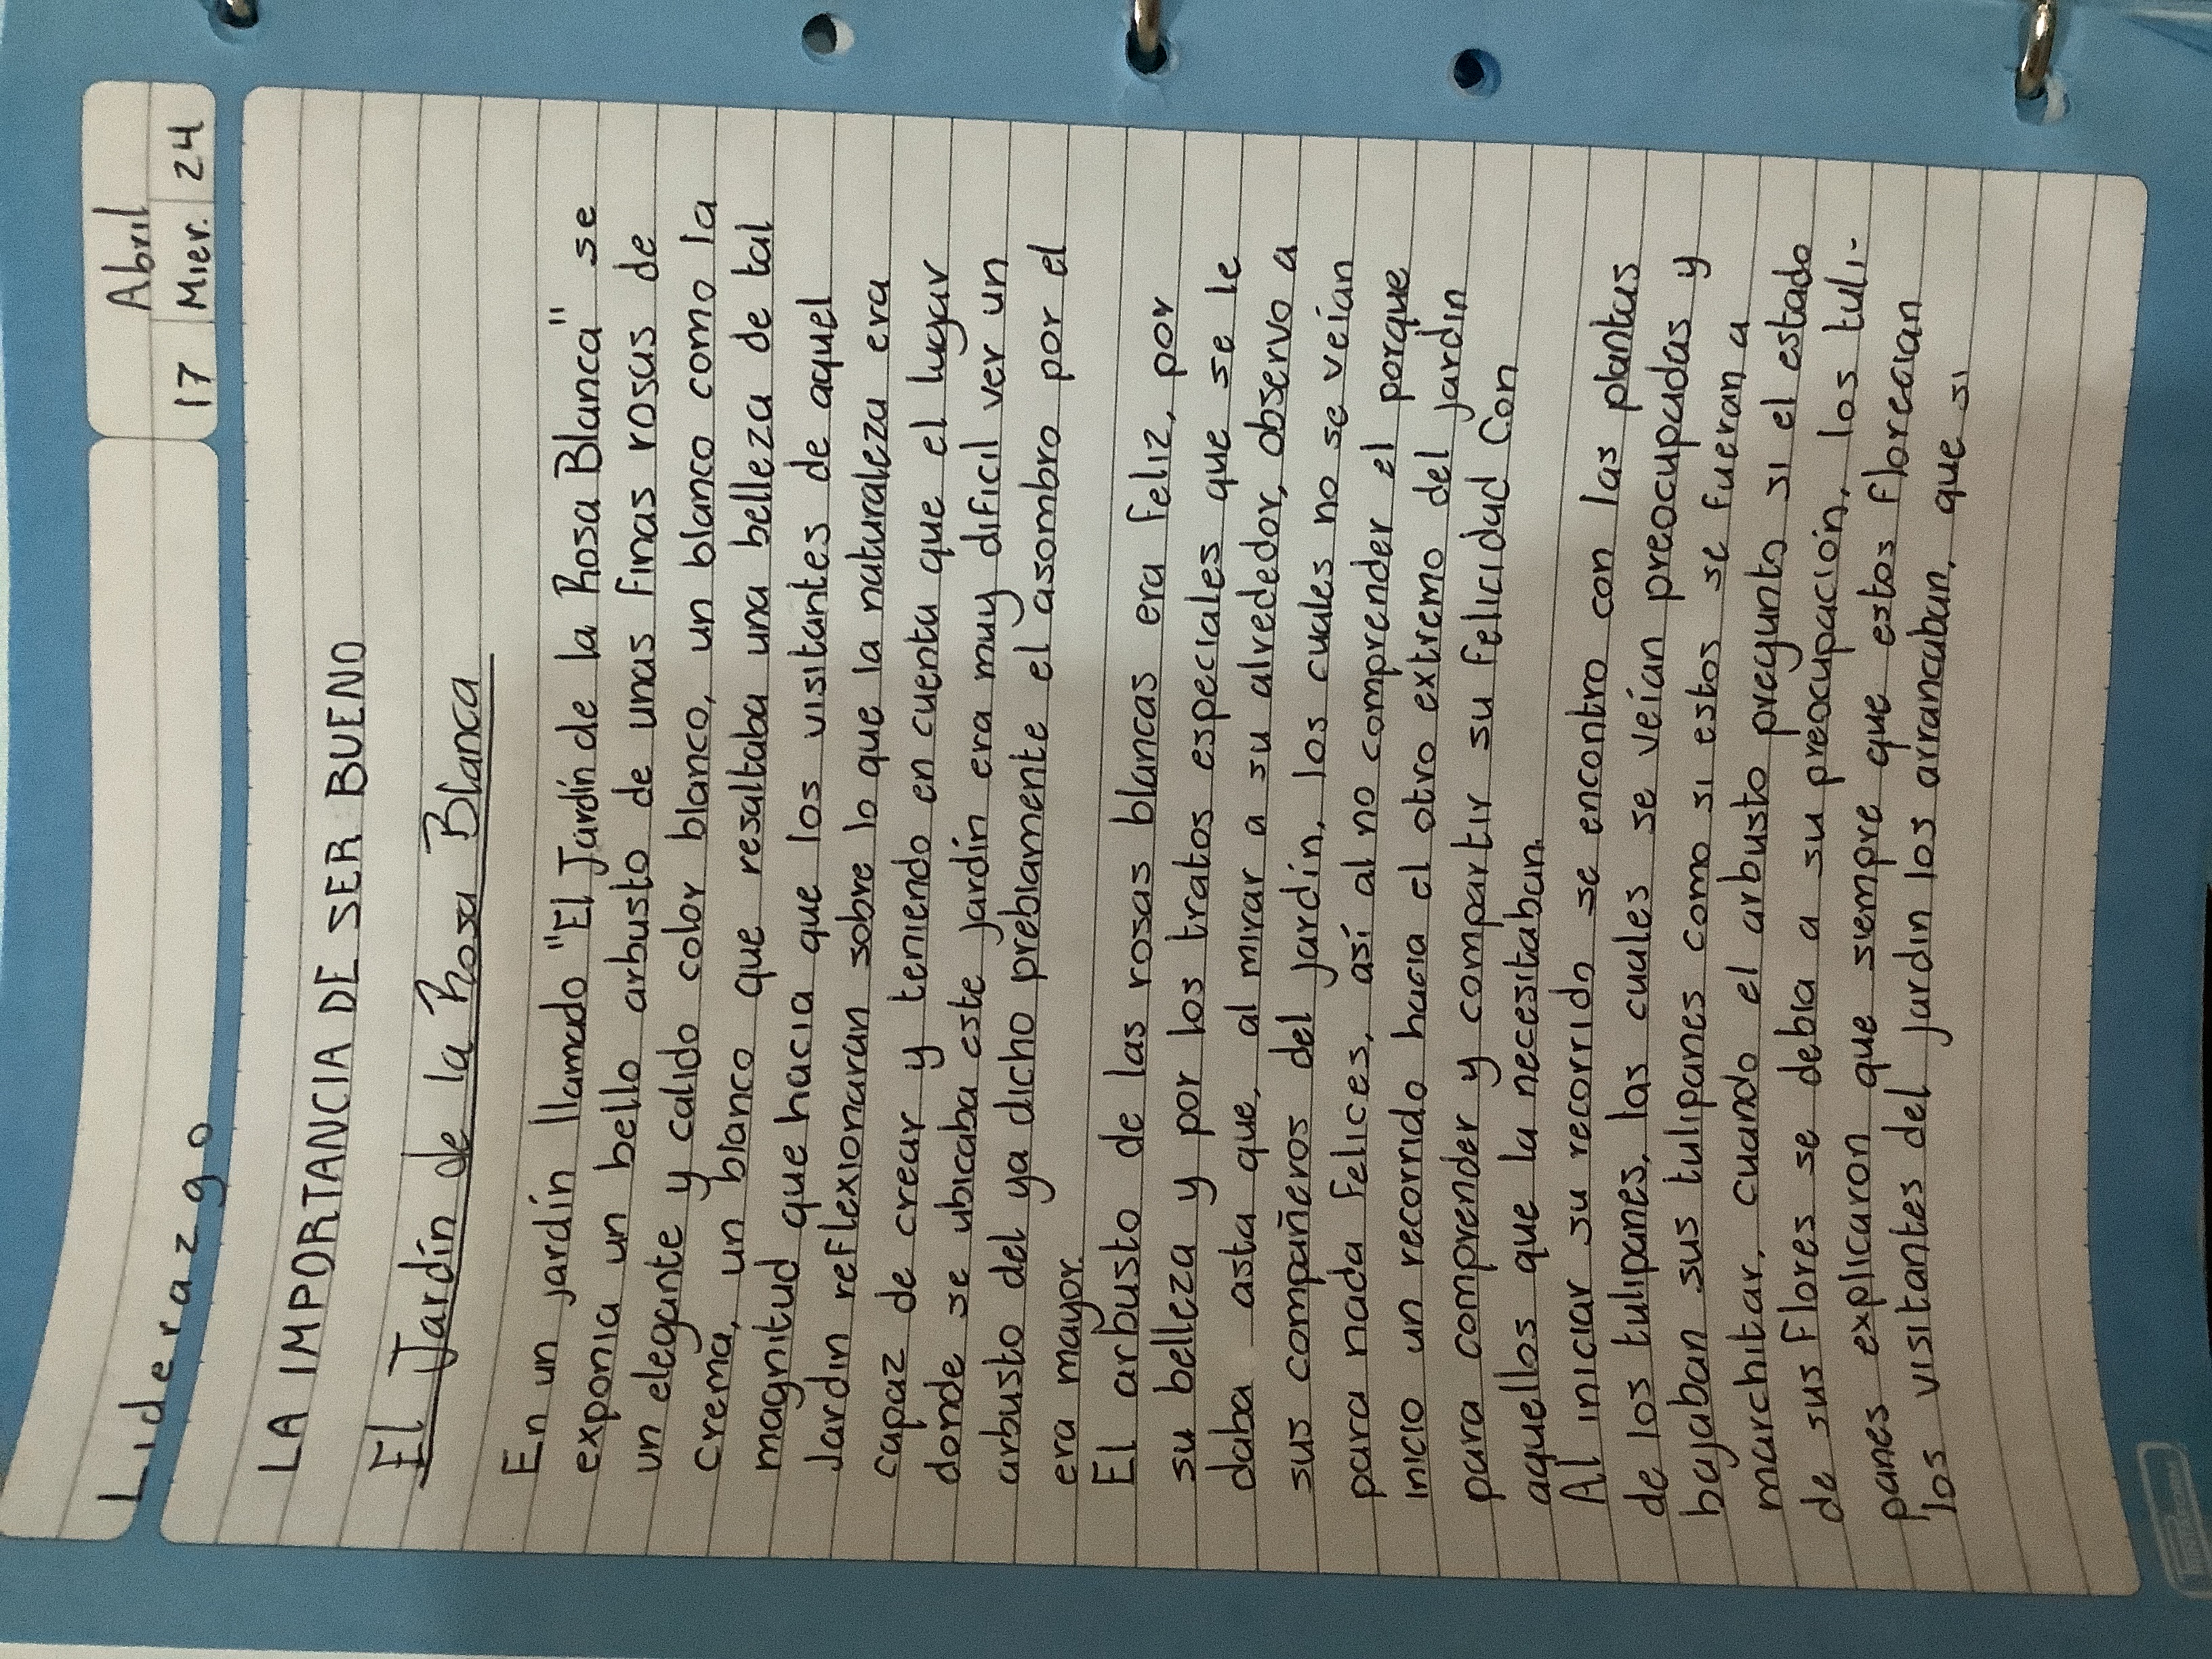 Abril
Liderazgo
17 Mier. 24
LA IMPORTANCIA DE SER BUENO
El Jardín de la Rosa Blanca
En un jardín llamado "El Jardín de la Rosa Blanca" se
exponia un bello arbusto de unas finas rosas de
un elegante y calido color blanco, un blanco como la
crema, un blanco que resaltaba una belleza de tal
magnitud que hacia que los visitantes de aquel
Jardin reflexionaran sobre lo que la naturaleza era
capaz de crear y teniendo en cuenta que el lugar
donde se ubicaba este jardín era muy dificil ver un
arbusto del ya dicho preblamente el asombro por el
era mayor.
El arbusto de las rosas blancas era feliz, por
su belleza y por los tratos especiales que se le
daba asta que, al mirar a su alrededor, observo a
sus compañeros del jardín, los cuales no se veían
para nada felices, así al no comprender el porque
inicio un recorrido hacia el otro extremo del jardin
para comprender y compartir su felicidad con
aquellos que la necesitaban.
Al iniciar su recorrido se encontro con las plantas
de los tulipanes, las cuales se veían preocupadas y
bajaban sus tulipanes como si estos se fueran a
marchitar, cuando el arbusto pregunto si el estado
de sus flores se debia a su preocupación, los tuli-
panes explicaron que siempre que estos florecian
los visitantes del jardin los arrancaban, que si